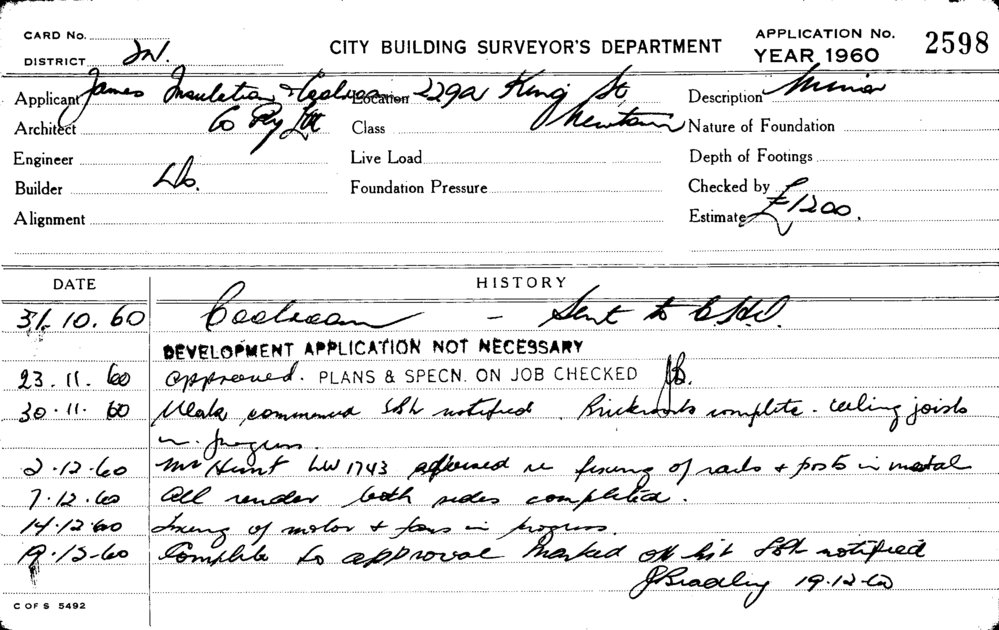 CARD No.
DISTRICT
CITY BUILDING SURVEYOR'S DEPARTMENT
APPLICATION No. 2598
YEAR 1960
Applicant James Insulation & Coolroom Location 229a King St, Description Minor
Architect Co Pty Ltd Class Newtown Nature of Foundation
Engineer Live Load Depth of Footings
Builder Do. Foundation Pressure Checked by
Alignment Estimate £1200.
DATE HISTORY
31.10.60 Coolroom - Sent to
DEVELOPMENT APPLICATION NOT NECESSARY
23.11.60 approved. PLANS & SPECN. ON JOB CHECKED JB.
30.11.60 commenced notified. Brickwork complete. ceiling joists
in progress.
2.12.60 Mr Hunt LW1743 re fixing of rails & posts in metal
7.12.60 All render both sides completed.
14.12.60 Fixing of motor & fans in progress.
19.12.60 Complete to approval marked off list notified
JBradley 19.12.60
C OF S 5492